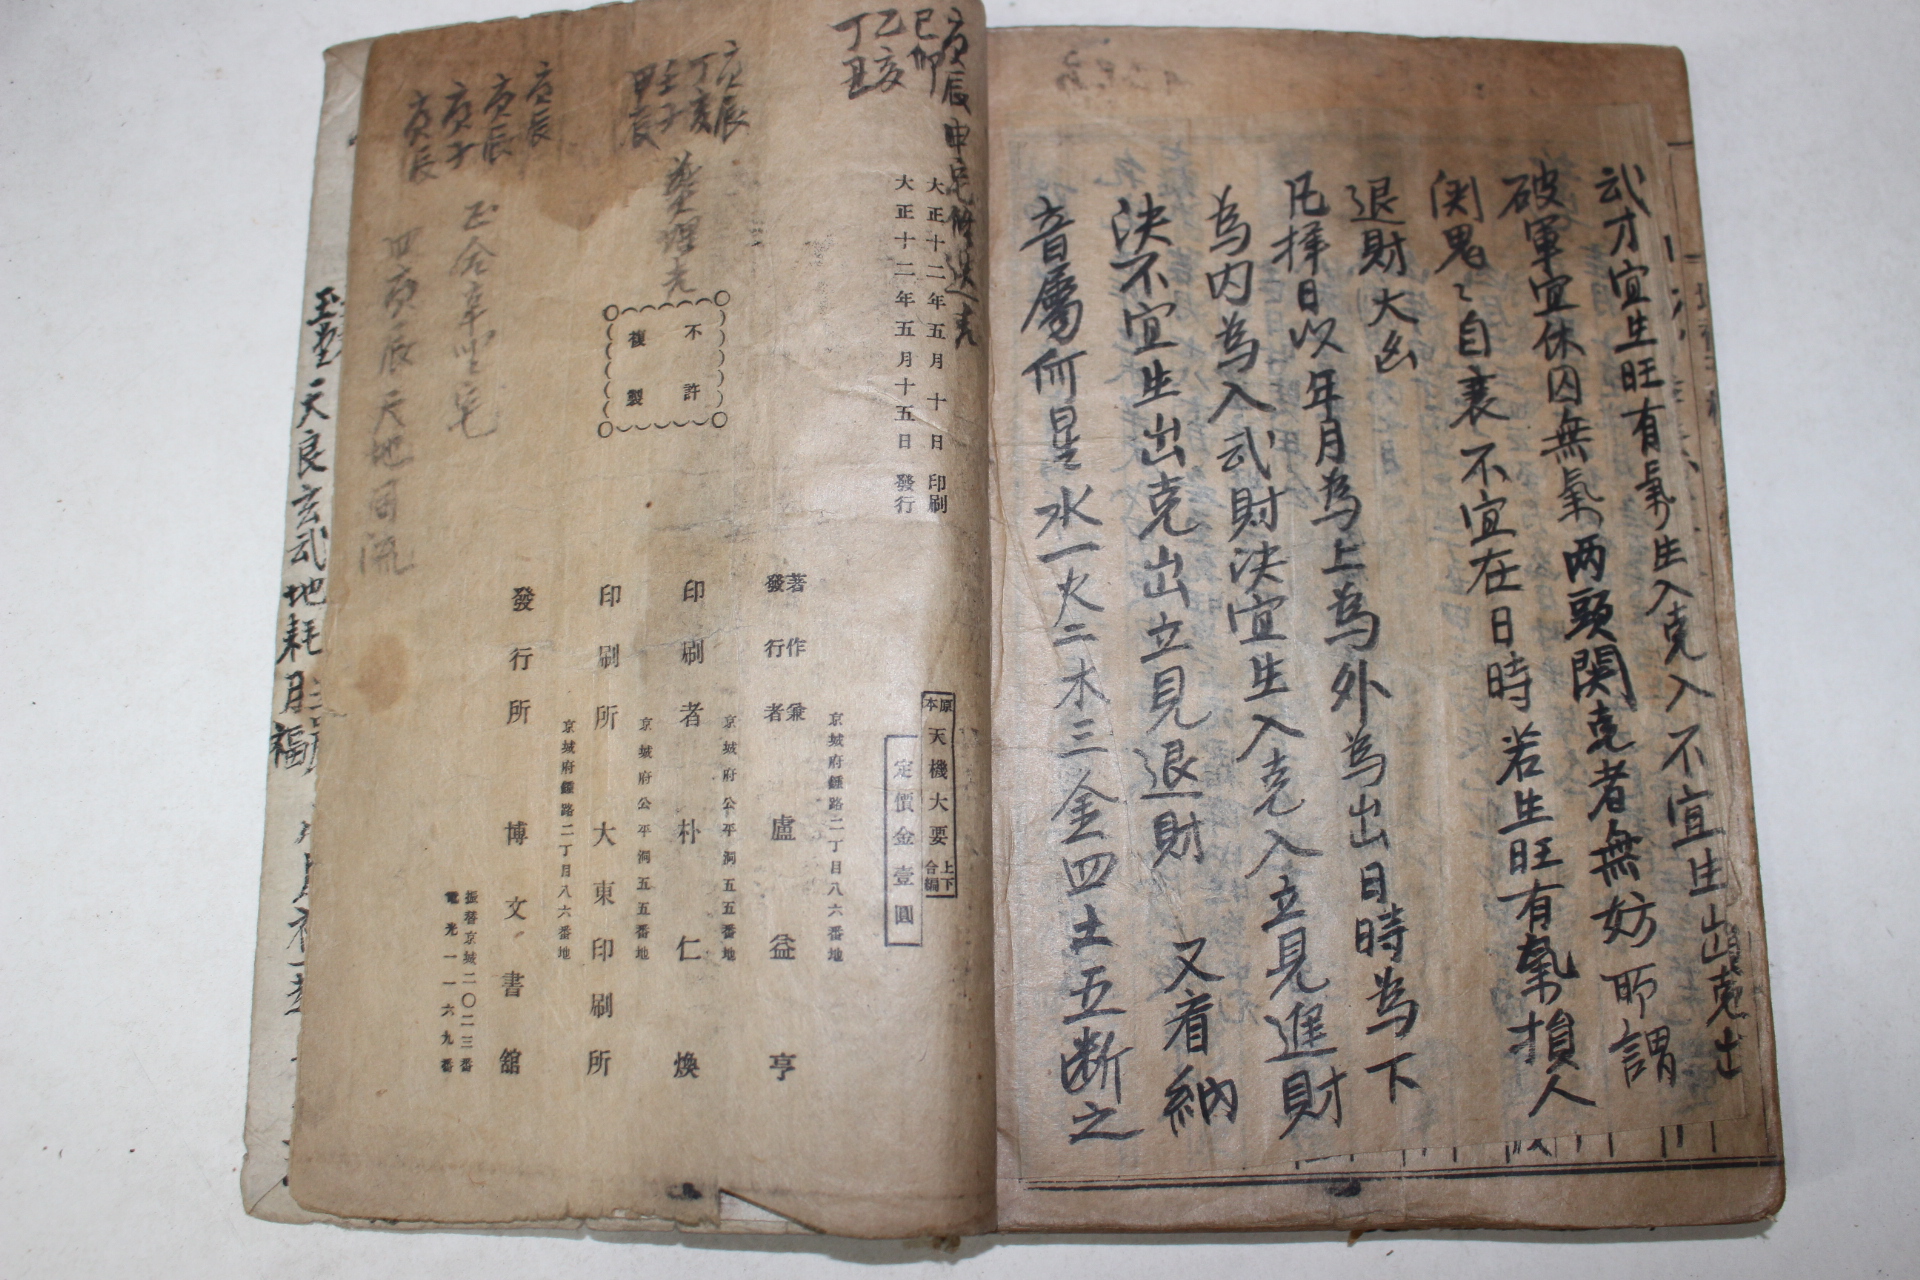 武才宜生旺有氣生入克入不宜生出克出
破軍宜休囚無氣两頭関克者無妨所謂
関鬼々自衰不宜在日時若生旺有氣損人
退財大凶
凡擇日以年月為上為外為出日時為下
為内為入武財決宜生入克入立見進財
決不宜生出克出立見退財 又看納
音屬何星水一火二木三金四土五断之
庚辰申宅修造吉
己卯
乙亥
丁丑
大正十二年五月十日印刷
大正十二年五月十五日發行
不許
複製
原本 天機大要 上下合編
定價金壹圓
京城府鍾路二丁目八六番地
著作兼
發行者 盧益亨
京城府公平洞五五番地
印刷者 朴仁煥
京城府公平洞五五番地
印刷所 大東印刷所
京城府鍾路二丁目八六番地
發行所 博文書舘
振替京城二〇二三番
電光一一六九番
庚辰
丁亥
壬子
甲辰
庚辰
庚辰
庚子
庚辰
四庚辰天地同流
玉堂天良玄武地耗月福